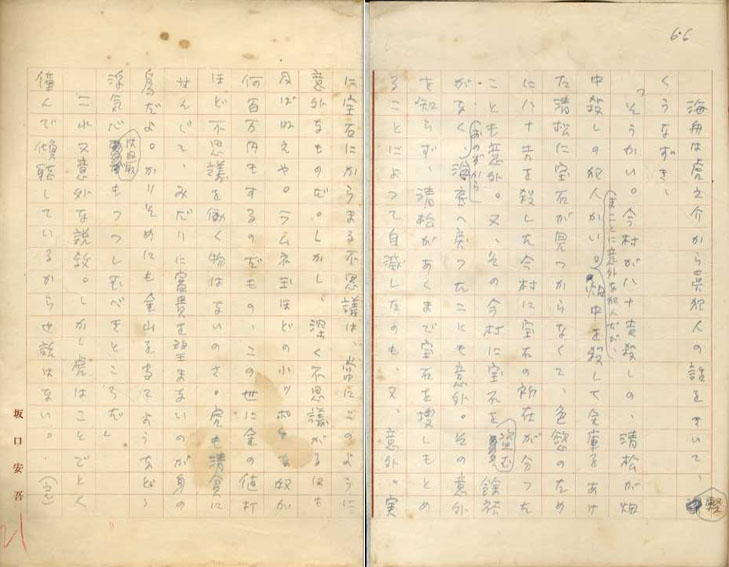 6.6
海舟は虎之介から真犯人の話をきいて軽
くうなずき、
「そうかい。今村が八十吉殺しの、清松が畑
中殺しの犯人かい。まことに意外な犯人だが、畑中を殺して金庫をあけ
た清松に宝石が見つからなくて、色慾のため
に八十吉を殺した今村に宝石の所在が分った
ことも意外。又、その今村に宝石を盗む余裕
がなく、おのずから海底へ戻ったことも意外。その意外
を知らず、清松があくまで宝石を捜しもとめ
ることによって自滅したのも、又、意外。実
に宝石にからまる不思議は、常にこのように
意外なものだ。しかし、深く不思議がるには
及ばねえや。ラムネ玉ほどの小ッポケな奴が
何百万円もするのだもの、この世に金の値打
ほど不思議を働く物はないのさ。虎も清貧に
せんじて、みだりに富貴を望まないのが身の
為だよ。かりそめにも金山を当てようなどゝ
浮気心はもつつしむべきところだ」
これ又意外な説教。しかし虎はことごとく
謹んで傾聴しているから世話はない。(完)
坂口安吾
21